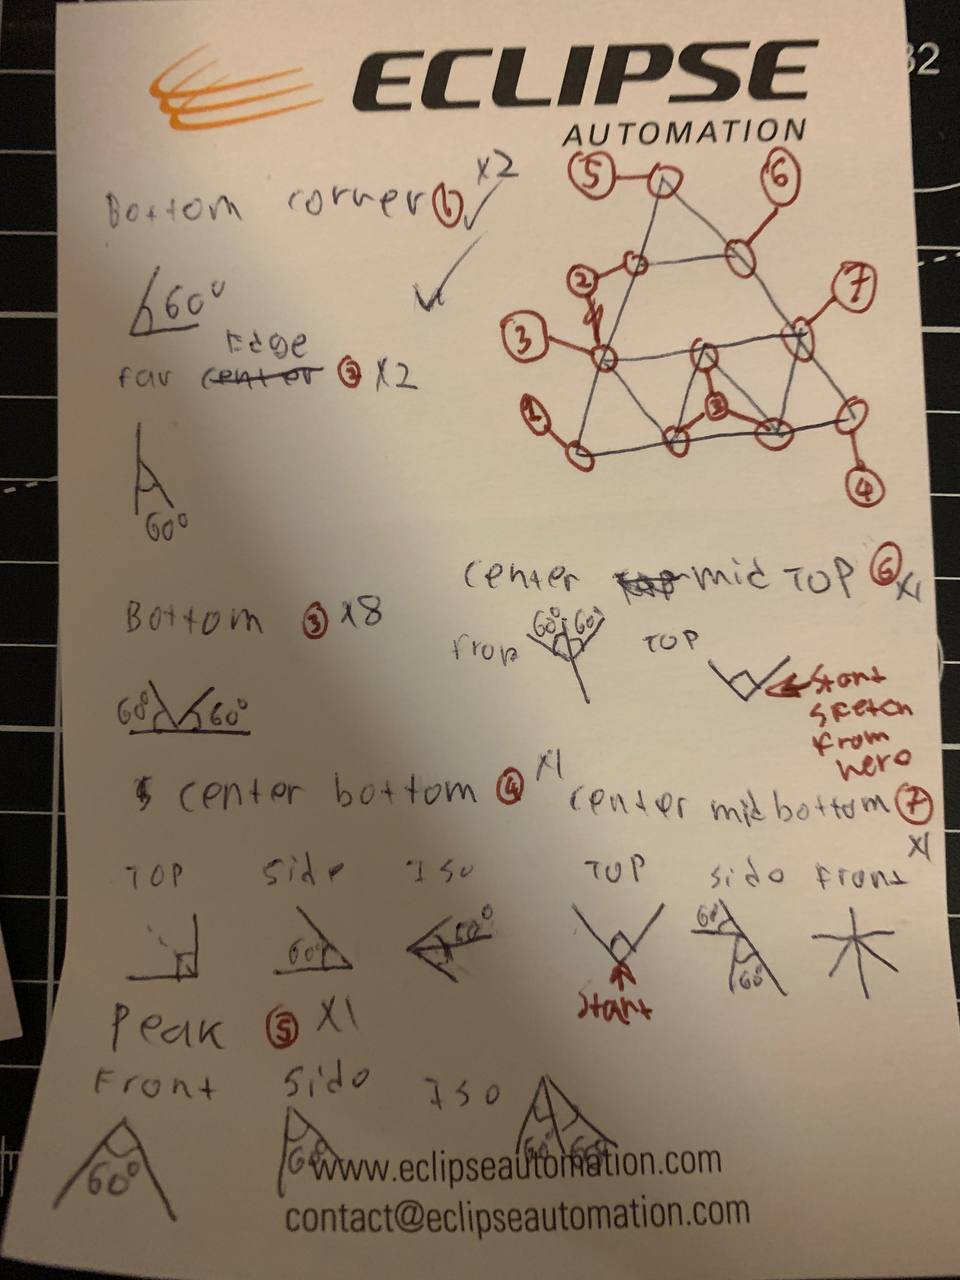 32
ECLIPSE
AUTOMATION
Bottom corner 1 x2
60°
Edge
far center 2 x2
60°
Bottom 3 x8
60° 60°
5
6
2
7
3
1
3
4
center mid TOP 6 x1
Fron
60° 60°
TOP
Start
sketch
from
here
center bottom 4 x1
TOP Side ISO
60° 60°
center mid bottom 7
x1
TOP Side Front
60°
60°
Start
Peak 5 x1
Front Side ISO
60° 60° 60° 60°
www.eclipseautomation.com
contact@eclipseautomation.com